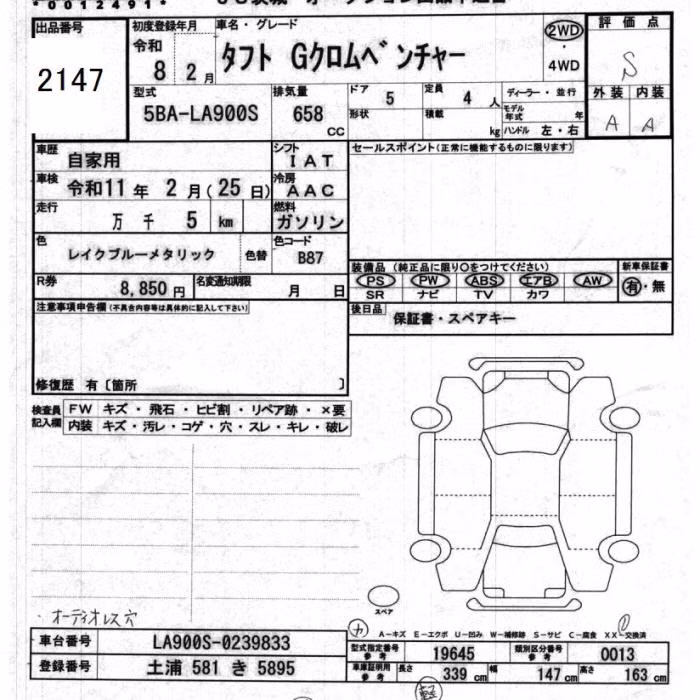 *0012491*
出品番号 初度登録年月 車名・グレード 2WD 評価点
令和 タフト Gクロムベンチャー ・ S
2147 8 2月 4WD
型式 排気量 ドア 5 定員 4人 ディーラー・並行 外装 内装
5BA-LA900S 658 cc 形状 積載 kg モデル年式 年 A A
ハンドル 左・右
車歴 自家用 シフト IAT セールスポイント(正常に機能するものに限ります)
車検 令和11年 2月(25日) 冷房 AAC
走行 万 千 5 km 燃料 ガソリン
色 レイクブルーメタリック 色替 色コード B87
装備品 (純正品に限り○をつけてください) 新車保証書
R券 8,850円 名変通知期限 月 日 PS PW ABS エアB AW 有・無
SR ナビ TV カワ
注意事項申告欄(不具合内容等は具体的に記入して下さい) 後日品 保証書・スペアキー
修復歴 有〔箇所 〕
検査員 FW キズ・飛石・ヒビ割・リペア跡・×要
記入欄 内装 キズ・汚レ・コゲ・穴・スレ・キレ・破レ
スペア
オーディオレス穴
カ A-キズ E-エクボ U-凹み W-補修跡 S-サビ C-腐食 XX-交換済
車台番号 LA900S-0239833 型式指定番号参考 19645 類別区分番号参考 0013
登録番号 土浦 581 き 5895 車庫証明用参考 長さ 339cm 幅 147cm 高さ 163cm
軽